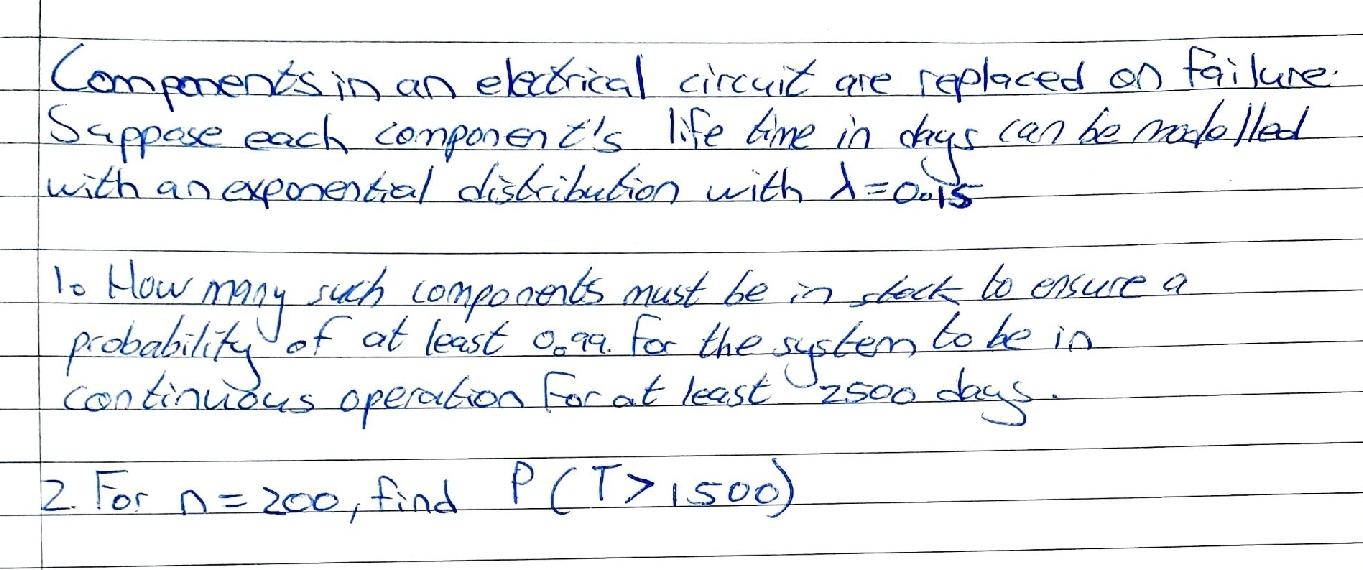 Components in an electrical circuit are replaced on failure.
Suppose each component's life time in days can be modelled
with an exponential distribution with λ=0.15
1. How many such components must be in stock to ensure a
probability of at least 0.99. For the system to be in
continuous operation For at least 2500 days.
2. For n=200, find P(T>1500)